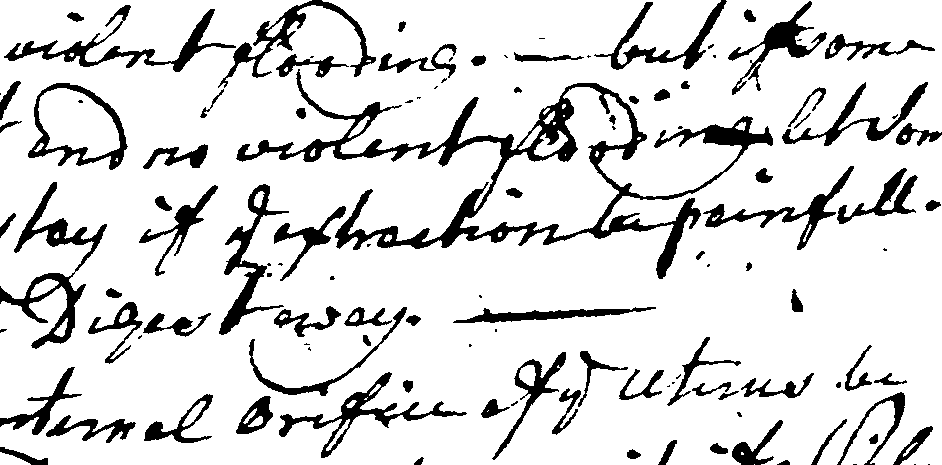 violent flooding. — but if some
and no violent flooding let som
stay if ye extraction be painfull.
Digest away. —
nternal Orifice of ye Uterus be
if